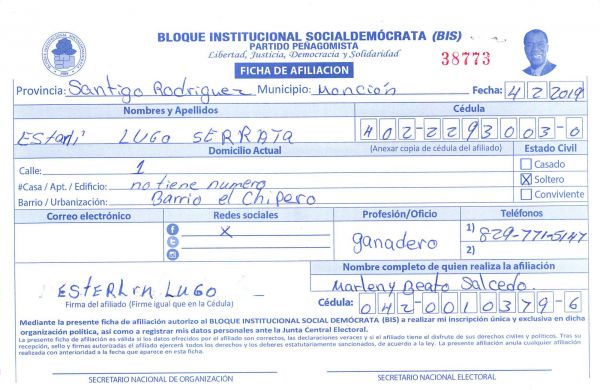 BLOQUE INSTITUCIONAL SOCIALDEMÓCRATA (BIS)
PARTIDO PEÑAGOMISTA
Libertad, Justicia, Democracia y Solidaridad
38773
FICHA DE AFILIACION
Provincia: Santigo Rodriguez Municipio: Monción Fecha: 4 2 2019
Nombres y Apellidos Cédula
Estarli LUGO SERRATA 402-2293003-0
Domicilio Actual (Anexar copia de cédula del afiliado) Estado Civil
Calle: 1 Casado
#Casa / Apt. / Edificio: no tiene numero X Soltero
Barrio / Urbanización: Barrio el Chipero Conviviente
Correo electrónico Redes sociales Profesión/Oficio Teléfonos
X ganadero 1) 829-771-5147
2)
Nombre completo de quien realiza la afiliación
ESTERLIN LUGO Marleny Beato Salcedo.
Firma del afiliado (Firme igual que en la Cédula) Cédula: 042-0010379-6
Mediante la presente ficha de afiliación autorizo al BLOQUE INSTITUCIONAL SOCIAL DEMÓCRATA (BIS) a realizar mi inscripción única y exclusiva en dicha
organización política, así como a registrar mis datos personales ante la Junta Central Electoral.
La presente ficha de afiliación es válida si los datos ofrecidos por el afiliado son correctos, las declaraciones veraces y si el afiliado tiene el disfrute de sus derechos civiles y políticos. Tras su
recepción, sello y firmas autorizadas el afiliado ejercerá todos los derechos y los deberes estatutariamente sancionados, de acuerdo a la ley. La presente afiliación anula cualquier afiliación
realizada con anterioridad a la fecha que aparece en esta ficha.
SECRETARIO NACIONAL DE ORGANIZACIÓN SECRETARIO NACIONAL ELECTORAL